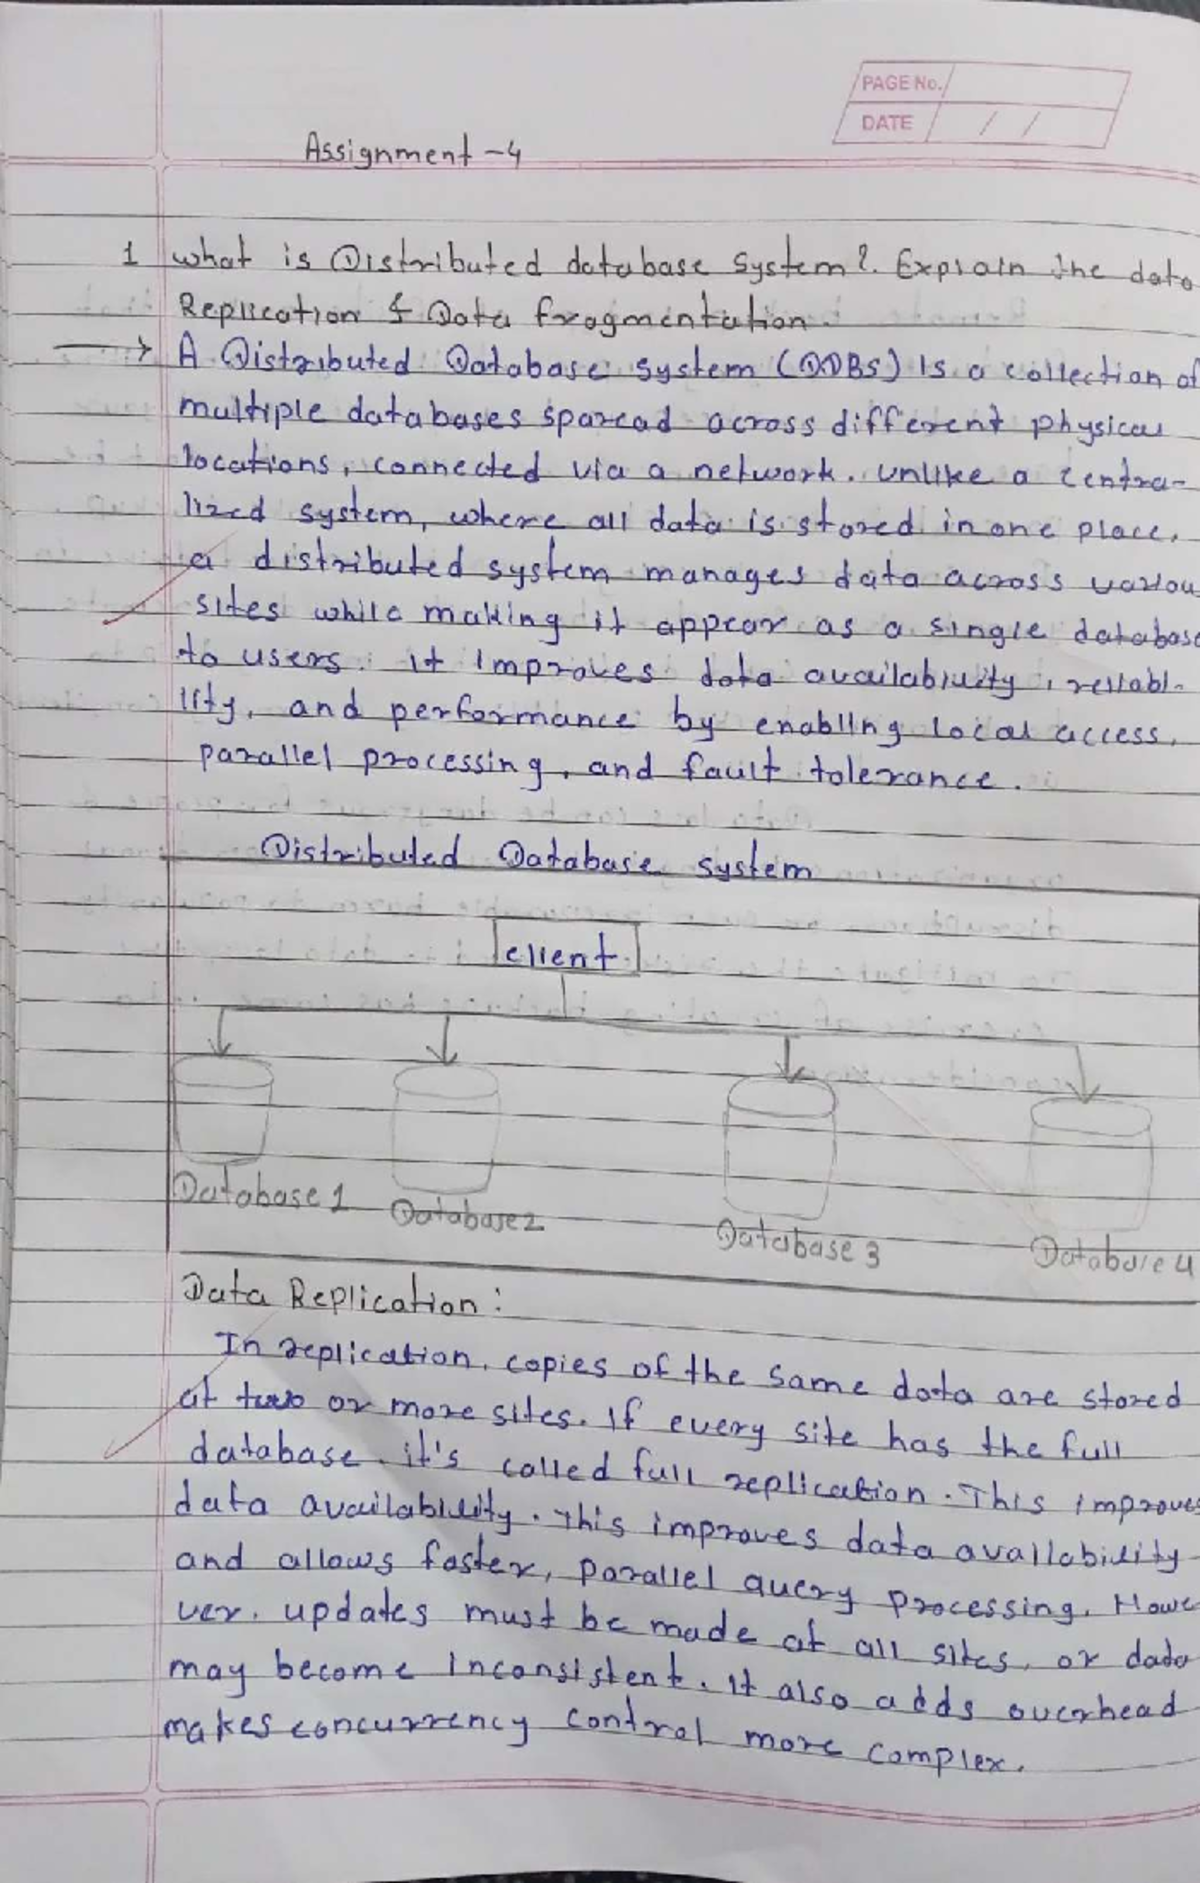 PAGE No.
DATE / /
Assignment-4
1 what is Distributed database system?. Explain the data
Replication & Data fragmentation.
→ A Distributed Database system (DDBS) Is a collection of
multiple databases sparead across different physical
locations, connected via a network. unlike a centra-
lized system, where all data is stored in one place,
a distributed system manages data across variou
sites while making it appear as a single database
to users. it improves data availability, reliabi-
lity, and performance by enabling local access,
parallel processing, and fault tolerance.
Distributed Database system
client
Database 1 Database 2 Database 3 Database 4
Data Replication:
In replication, copies of the same data are stored
at two or more sites. If every site has the full
database. it's called full replication. This improves
data availability. This improves data availability
and allows faster, parallel query processing. Howe
ver. updates must be made at all sites, or data
may become inconsistent. it also adds overhead
makes concurrency control more complex.